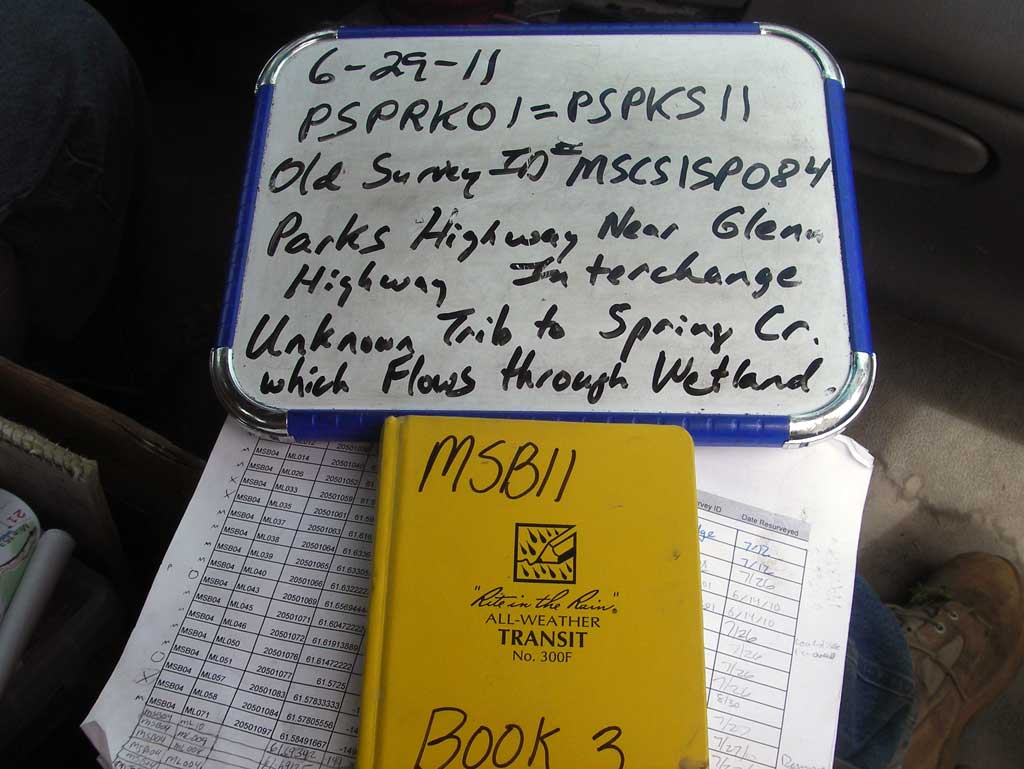 6-29-11
PSPRK01=PSPKS11
Old Survey ID= MSCS1SP084
Parks Highway Near Glenn
Highway Interchange
Unknown Trib to Spring Cr.
which Flows through Wetland.
MSB11
"Rite in the Rain"
ALL-WEATHER
TRANSIT
No. 300F
BOOK 3
MSB04 ML014
MSB04 ML026
MSB04 ML033 20501059
MSB04 ML035 20501061
MSB04 ML037 20501063 61.616
MSB04 ML038 20501064 61.6336
MSB04 ML039 20501065 61.63305
MSB04 ML040 20501066 61.632222
MSB04 ML043 20501069 61.6569444
MSB04 ML045 20501071 61.60472222
MSB04 ML046 20501072 61.61913889
MSB04 ML050 20501076 61.61472222
MSB04 ML051 20501077 61.5725
MSB04 ML057 20501083 61.57833333
MSB04 ML058 20501084 61.57805556
MSB04 ML071 20501097 61.58491667
rvey ID Date Resurveyed
7/12
7/12
7/26
6/14/10
6/14/10
7/26
7/26
7/26
7/26
8/30
7/27
7/27